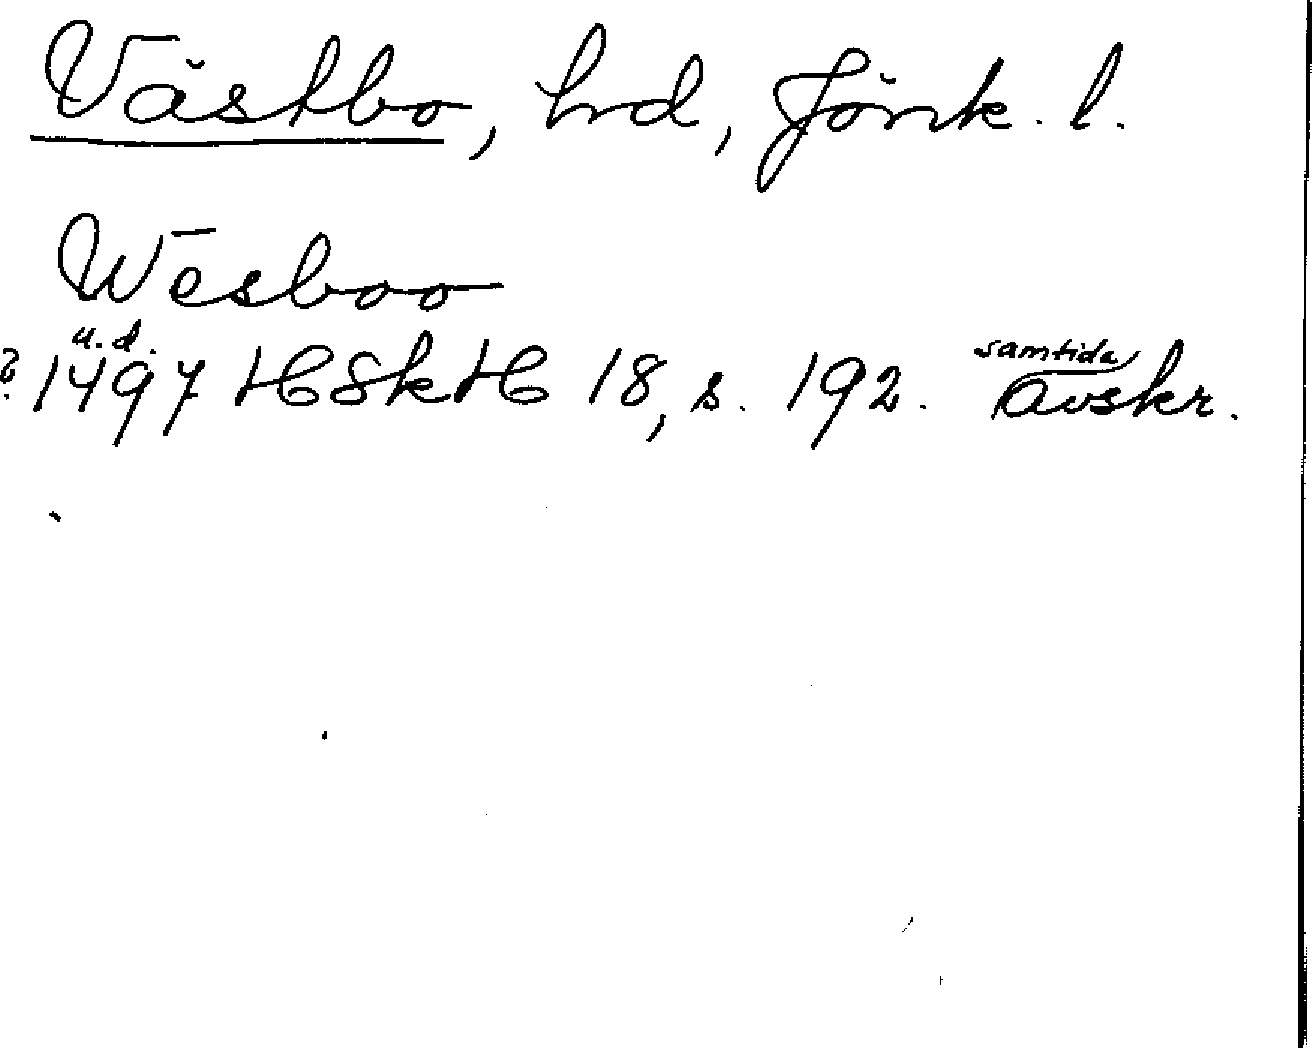 Västbo, hd, Jönk. l.
Wēsboo
u. d.
? 1497 HSkH 18, s. 192. samtida avskr.